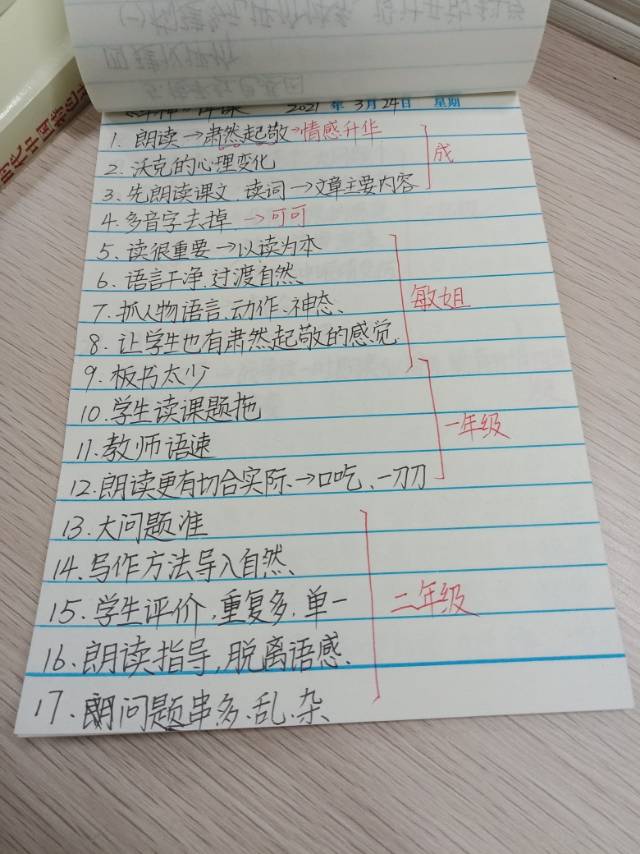 2021年3月24日 星期
1. 朗读→肃然起敬→情感升华
2. 沃克的心理变化
3. 先朗读课文.读词→文章主要内容
成
4. 多音字去掉 →可可
5. 读很重要→以读为本
6. 语言干净.过渡自然、
7. 抓人物语言.动作.神态、
敏姐
8. 让学生也有肃然起敬的感觉
9. 板书太少
10. 学生读课题拖
11. 教师语速
一年级
12. 朗读更有切合实际、→口吃、一刀刀
13. 大问题准
14. 写作方法导入自然、
15. 学生评价,重复多.单一
二年级
16. 朗读指导,脱离语感、
17. 朗问题串多、乱、杂